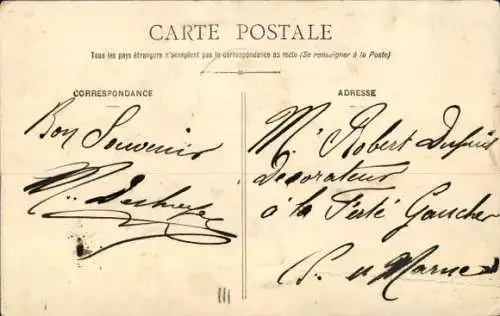 CARTE POSTALE
Tous les pays étrangers n'acceptent pas la correspondance au recto (Se renseigner à la Poste)
CORRESPONDANCE
Bon Souvenir
ADRESSE
M. Robert Dupuis
Décorateur
à la Ferté Gaucher
S. et Marne